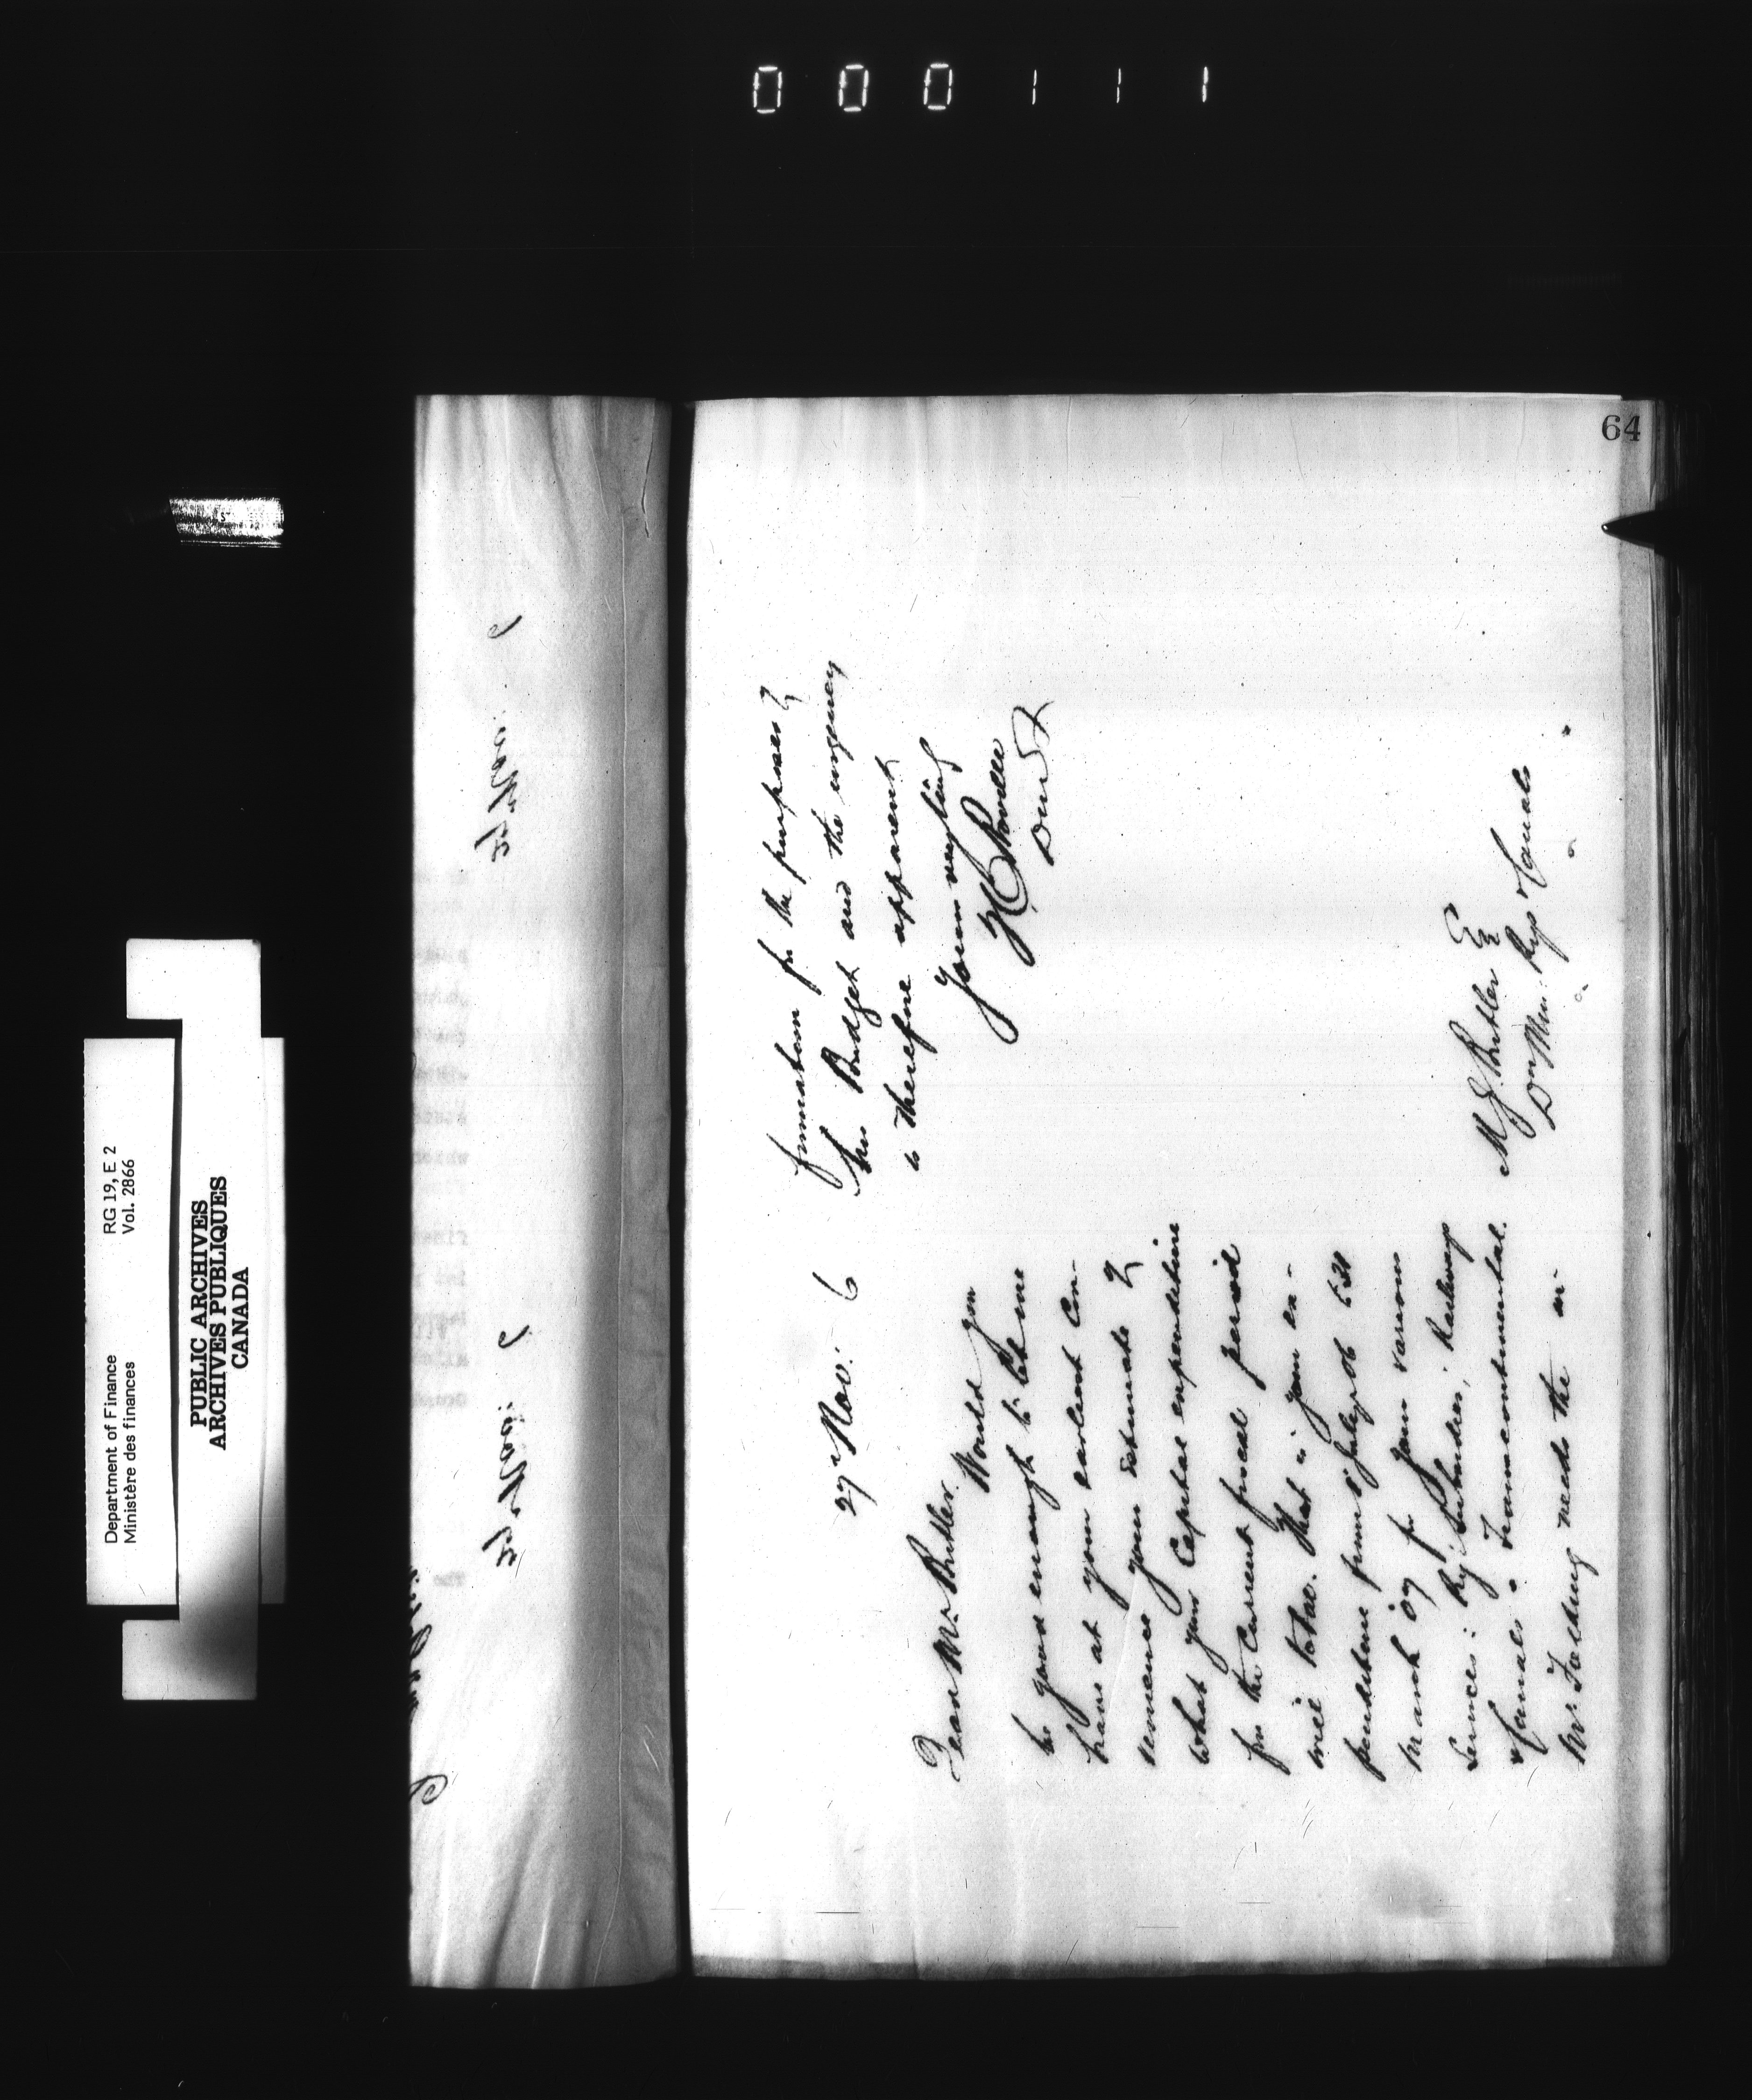 000111
64
Department of Finance RG 19, E 2
Ministère des finances Vol. 2866
PUBLIC ARCHIVES
ARCHIVES PUBLIQUES
CANADA
27 Nov: 6
Dear Mr. Butler.
Would you
be good enough to let me
have at your earliest con-
venience your estimate of
what your Capital expenditure
for the current fiscal period
will total. That is your ex-
penditure from 1 July 06 to 31
March 07 for your various
services: Ry Subsidies, Railways
& Canals & Transcontinental.
Mr Fielding needs the in-
formation for the purposes of
his Budget and the urgency
is therefore apparent
Yours very truly
M J Butler Esq
Dy Min: Rys & Canals